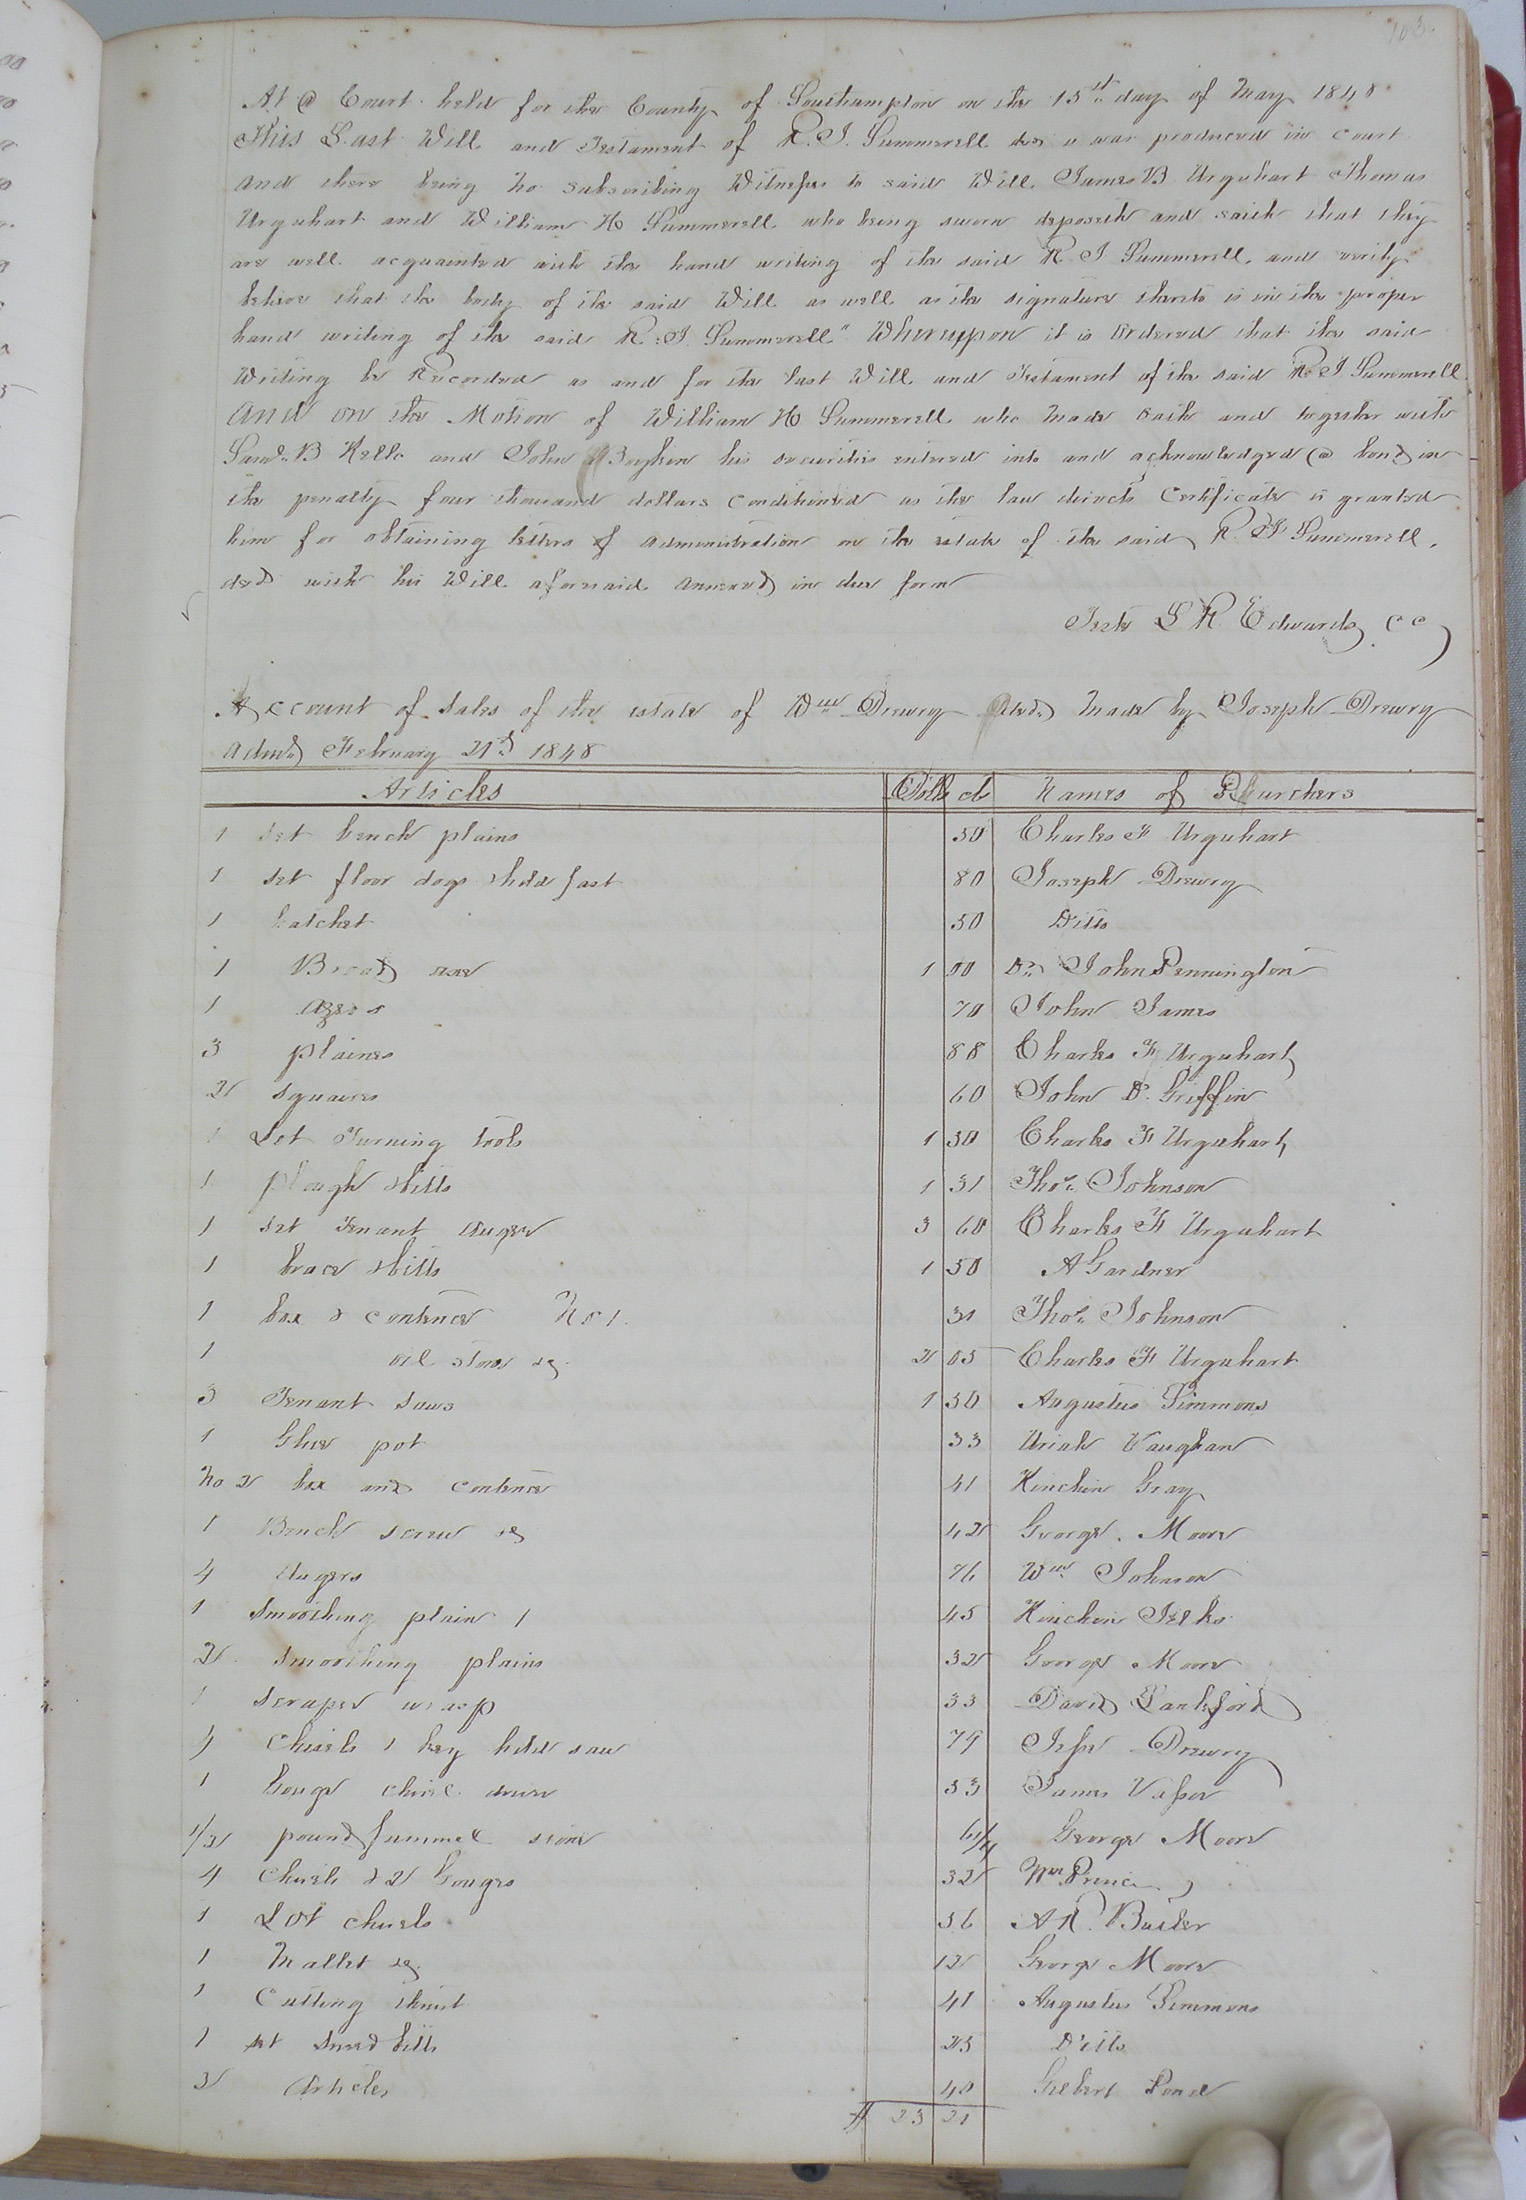 103
At a Court held for the County of Southampton on the 15th day of May 1848
This Last Will and Testament of R. J. Summerell decd was produced in court
and there being no subscribing Witnesses to said Will James B Urquhart Thomas
Urquhart and William H Summerell who being sworn deposeth and saith that they
are well acquainted with the hand writing of the said R. J Summerell, and verily
believe that the body of the said Will as well as the signature thereto is in the proper
hand writing of the said R. J. Summerell" Whereuppon it is Ordered that the said
Writing be Recorded as and for the last Will and Testament of the said R. J. Summerell
And on the Motion of William H Summerell who made oath and together with
Saml. B Kello and John Boykin his securities entered into and acknowledged a bond in
the penalty four thousand dollars conditioned as the law directs Certificate is granted
him for obtaining letters of administration on the estate of the said R. J Summerell.
decd with his Will aforesaid annexed in due form
Teste L R Edwards CC
Account of Sales of the estate of Wm Drewry decd. made by Joseph Drewry
Admd February 21st 1848
Articles Dolls ct Names of Phurchers
1 Set bench plains 50 Charles F Urquhart
1 Set floor dogs & hold fast 80 Joseph Drewry
1 hatchet 50 Ditto
1 Broad axe 1 00 Dr. John Pennington
1 70 John James
3 plaines 88 Charles F Urquhart
2 Squaires 60 John D. Griffin
1 Set Turning tools 1 30 Charles F Urquhart
1 plough & bitts 1 31 Thos. Johnson
1 Set Tenant Auger 3 60 Charles F Urquhart
1 brace & bitts 1 50 A Gardner
1 box & contence No 1. 31 Thos. Johnson
1 oil stone &c. 2 05 Charles F Urquhart
3 Tenant Saws 1 50 Augustus Simmons
1 Glue pot 33 Uriah Vaughan
No 2 box and contence 41 Kinchin Gray
1 Bench screw &c 42 George. Moore
4 Augers 76 Wm Johnson
1 Smoothing plain 1 45 Kinchin Jelks
2 Smoothing plains 32 George Moore
1 Scraper & rasp 33 David Lankford
4 Chisels 1 key hold saw 79 Jesse Drewry
1 Gouge chisel 53 James Vasser
1/2 pound stone 6 1/4 George Moore
4 Chisels & 2 Gouges 32 Wm Prince
1 Lot chisels 56 A R. Butler
1 Mallet &c. 12 George Moore
1 Cutting 41 Augustus Simmons
1 set bitts 25 Ditto
3 Articles 40 Gilbert Pond
$ 23 21